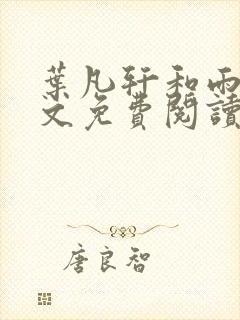 葉凡轩和雨
文免費閱讀
唐良智